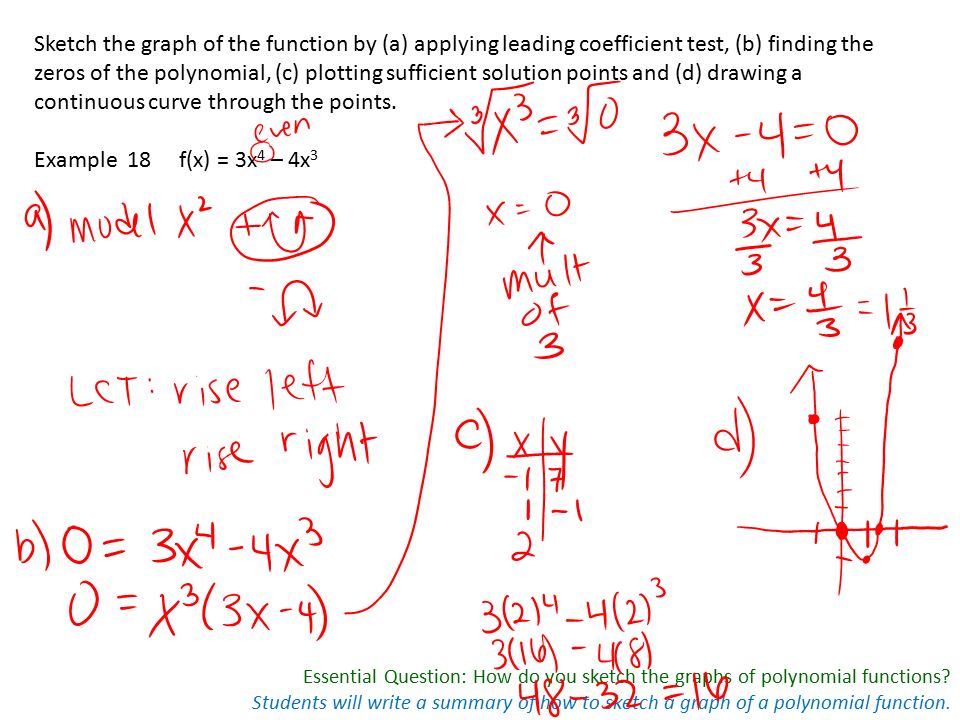 Sketch the graph of the function by (a) applying leading coefficient test, (b) finding the
zeros of the polynomial, (c) plotting sufficient solution points and (d) drawing a
continuous curve through the points.
even
Example 18 f(x) = 3x⁴ – 4x³
a) model x² +
-
LCT: rise left
rise right
b) 0 = 3x⁴ - 4x³
0 = x³(3x - 4)
∛x³ = ∛0
x = 0
mult
of
3
3x - 4 = 0
+4 +4
3x = 4
3 3
x = 4/3 = 1 1/3
c) x y
-1 7
1 -1
2
3(2)⁴ - 4(2)³
3(16) - 4(8)
48 - 32 = 16
d)
Essential Question: How do you sketch the graphs of polynomial functions?
Students will write a summary of how to sketch a graph of a polynomial function.